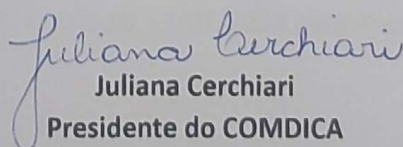 Juliana Cerchiari
Juliana Cerchiari
Presidente do COMDICA